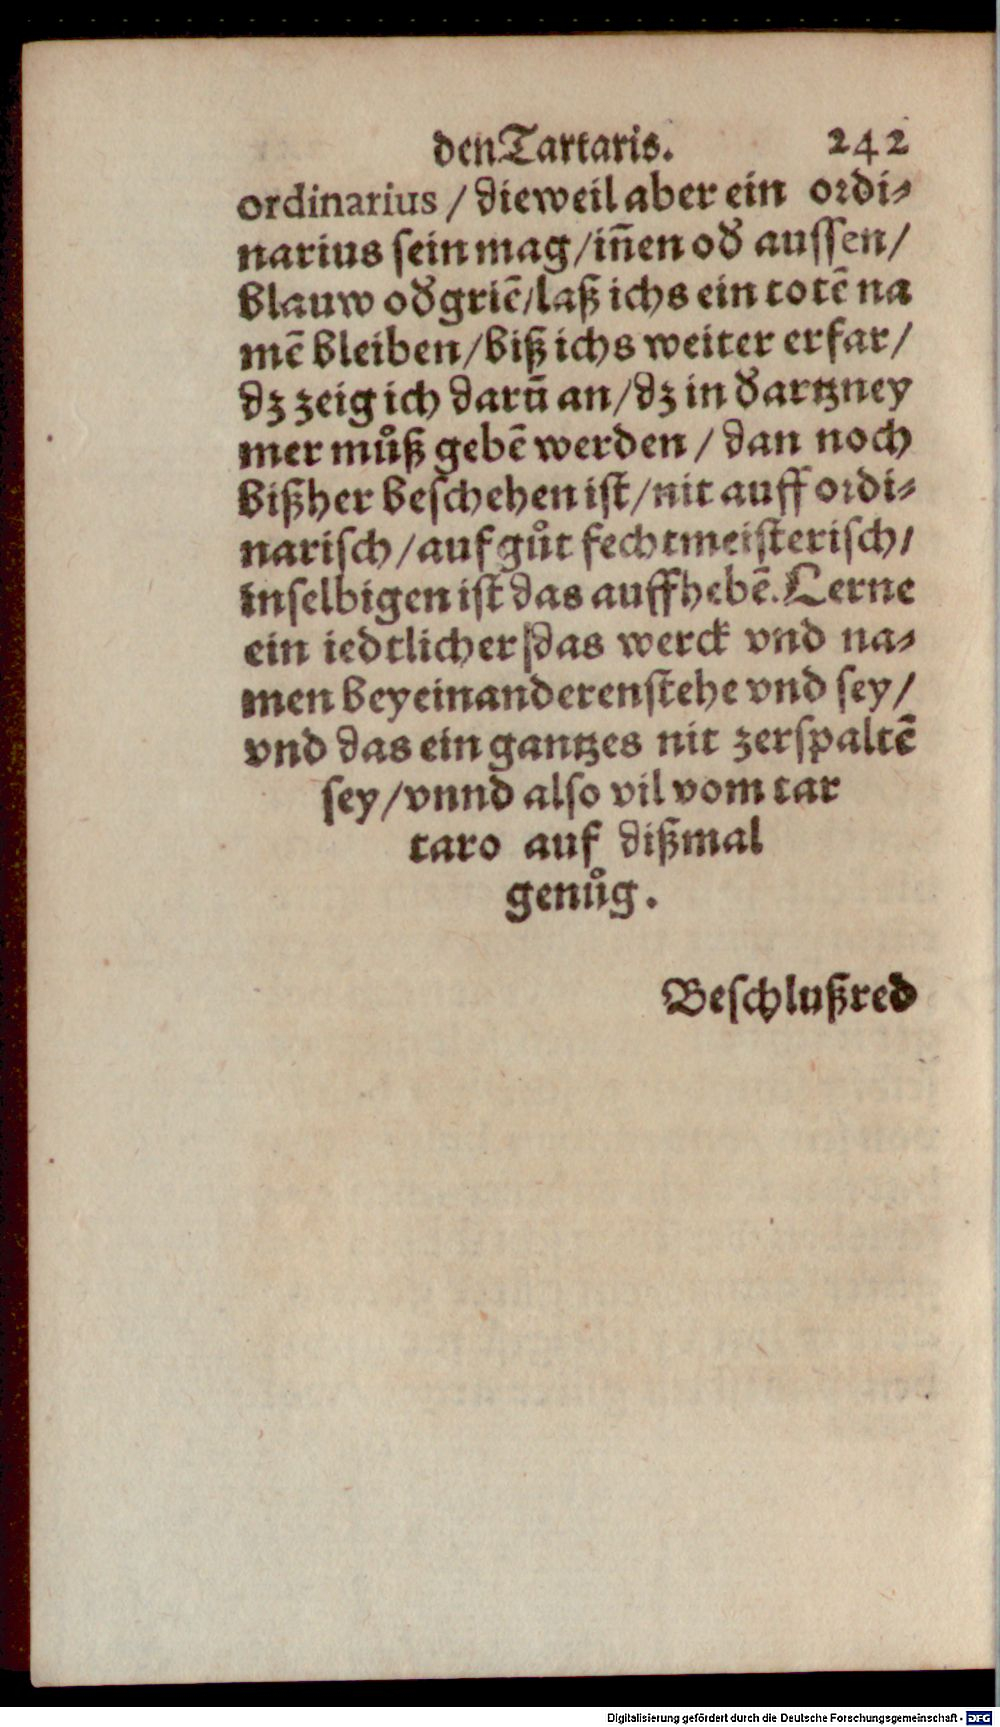 den Tartaris. 242
ordinarius / dieweil aber ein ordi⸗
narius sein mag / iñen od̄ aussen /
blauw od̄ griē / laß ichs ein totē na
mē bleiben / biß ichs weiter erfar /
dz zeig ich darū an / dz in d̄ artzney
mer můß gebē werden / dan noch
bißher beschehen ist / nit auff ordi⸗
narisch / auf gůt fechtmeisterisch /
inselbigen ist das auffhebē. Lerne
ein iedtlicher / das werck vnd na⸗
men beyeinanderen stehe vnd sey /
vnd das ein gantzes nit zerspaltē
sey / vnnd also vil vom tar
taro auf dißmal
genůg.
Beschlußred
Digitalisierung gefördert durch die Deutsche Forschungsgemeinschaft - DFG